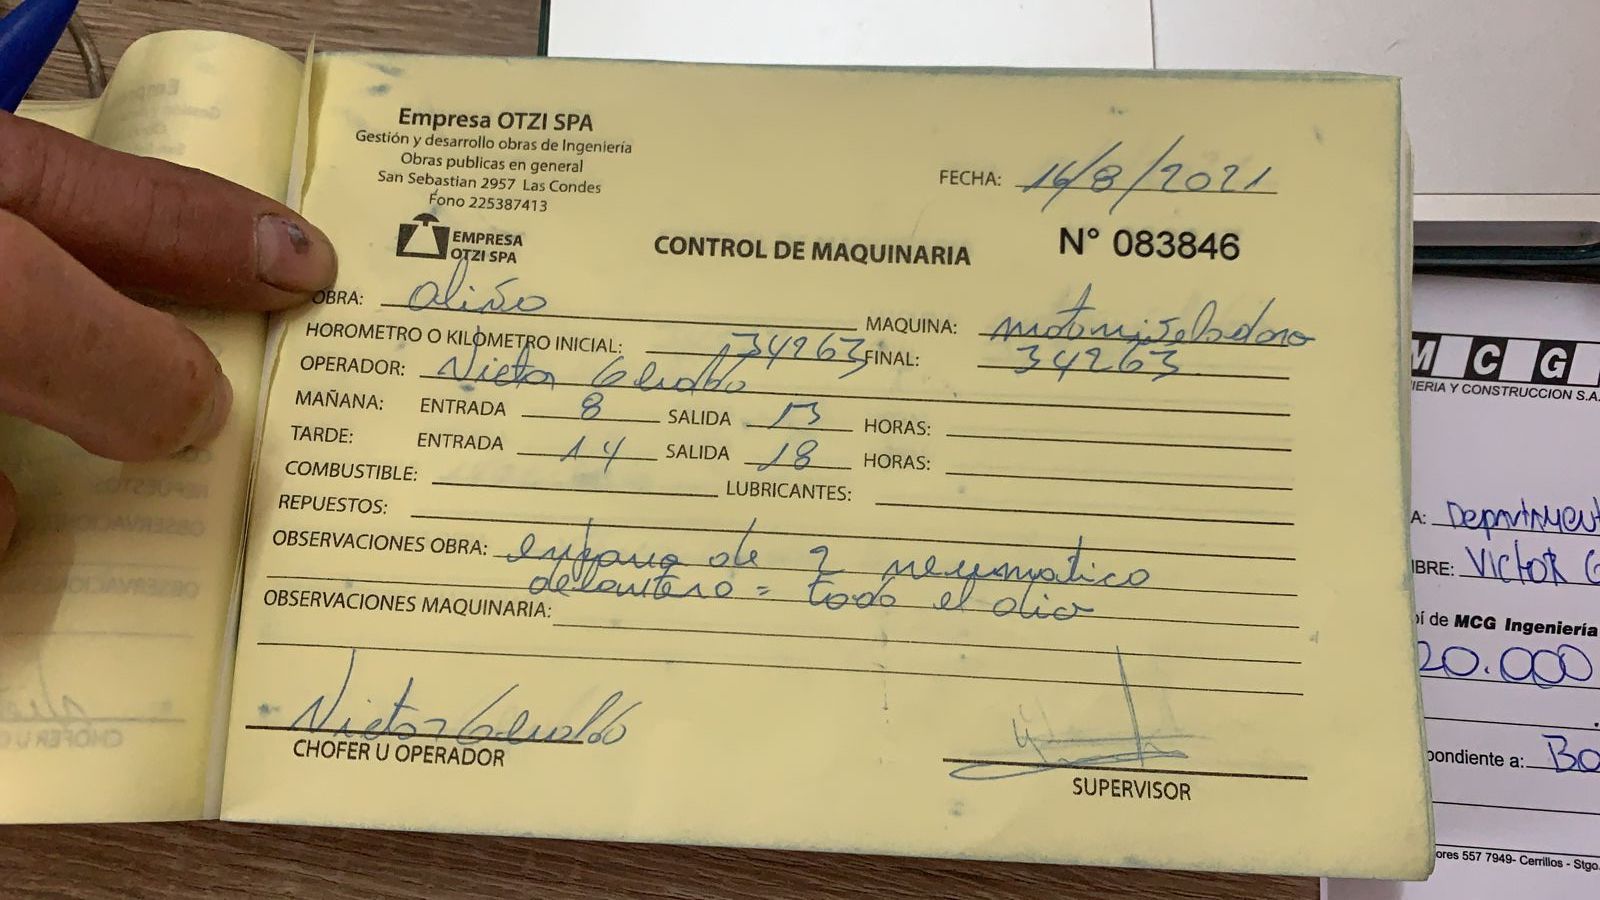 Empresa OTZI SPA
Gestión y desarrollo obras de Ingeniería
Obras publicas en general
San Sebastian 2957 Las Condes
Fono 225387413
EMPRESA
OTZI SPA
CONTROL DE MAQUINARIA
FECHA: 16/8/2021
N° 083846
OBRA: MAQUINA:
HOROMETRO O KILOMETRO INICIAL: 34263 FINAL: 34263
OPERADOR:
MAÑANA: ENTRADA 8 SALIDA 13 HORAS:
TARDE: ENTRADA 14 SALIDA 18 HORAS:
COMBUSTIBLE: LUBRICANTES:
REPUESTOS:
OBSERVACIONES OBRA: de 2 neumatico
delantero = todo el
OBSERVACIONES MAQUINARIA:
CHOFER U OPERADOR
SUPERVISOR
M C G
IERIA Y CONSTRUCCION S.A.
A: Departament
BRE: Victor G
í de MCG Ingeniería
20.000
pondiente a: Bo
ores 557 7949- Cerrillos - Stgo.